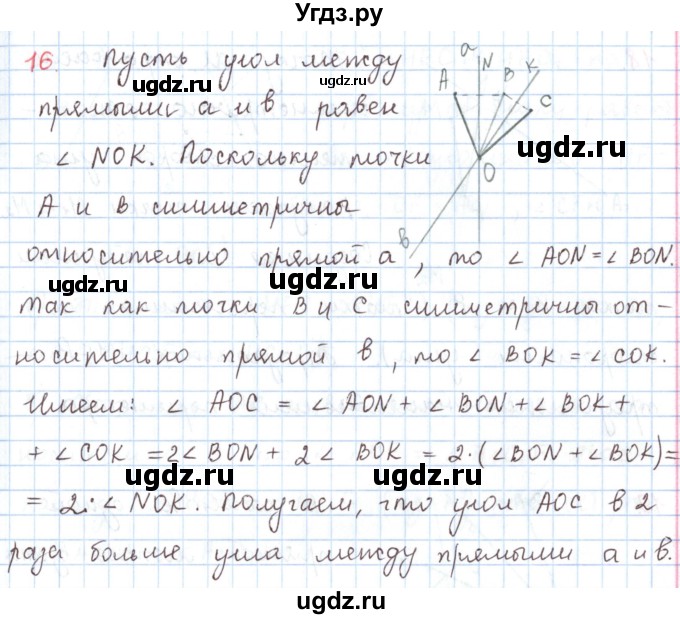 Угдз.ру
16. Пусть угол между
прямыми а и в равен
∠ NOK. Поскольку точки
А и в симметричны
относительно прямой а, то ∠ AON = ∠ BON.
Так как точки В и С симметричны от-
носительно прямой в, то ∠ BOK = ∠ COK.
Имеем: ∠ AOC = ∠ AON + ∠ BON + ∠ BOK +
+ ∠ COK = 2∠ BON + 2 ∠ BOK = 2·(∠BON + ∠ BOK) =
= 2·∠ NOK. Получаем, что угол AOC в 2
раза больше угла между прямыми а и в.
a N B K
A C
O
в
ugdz.ru
ugdz.ru
ugdz.ru
ugdz.ru
ugdz.ru
ugdz.ru
ugdz.ru
ugdz.ru
ugdz.ru
ugdz.ru
ugdz.ru
ugdz.ru